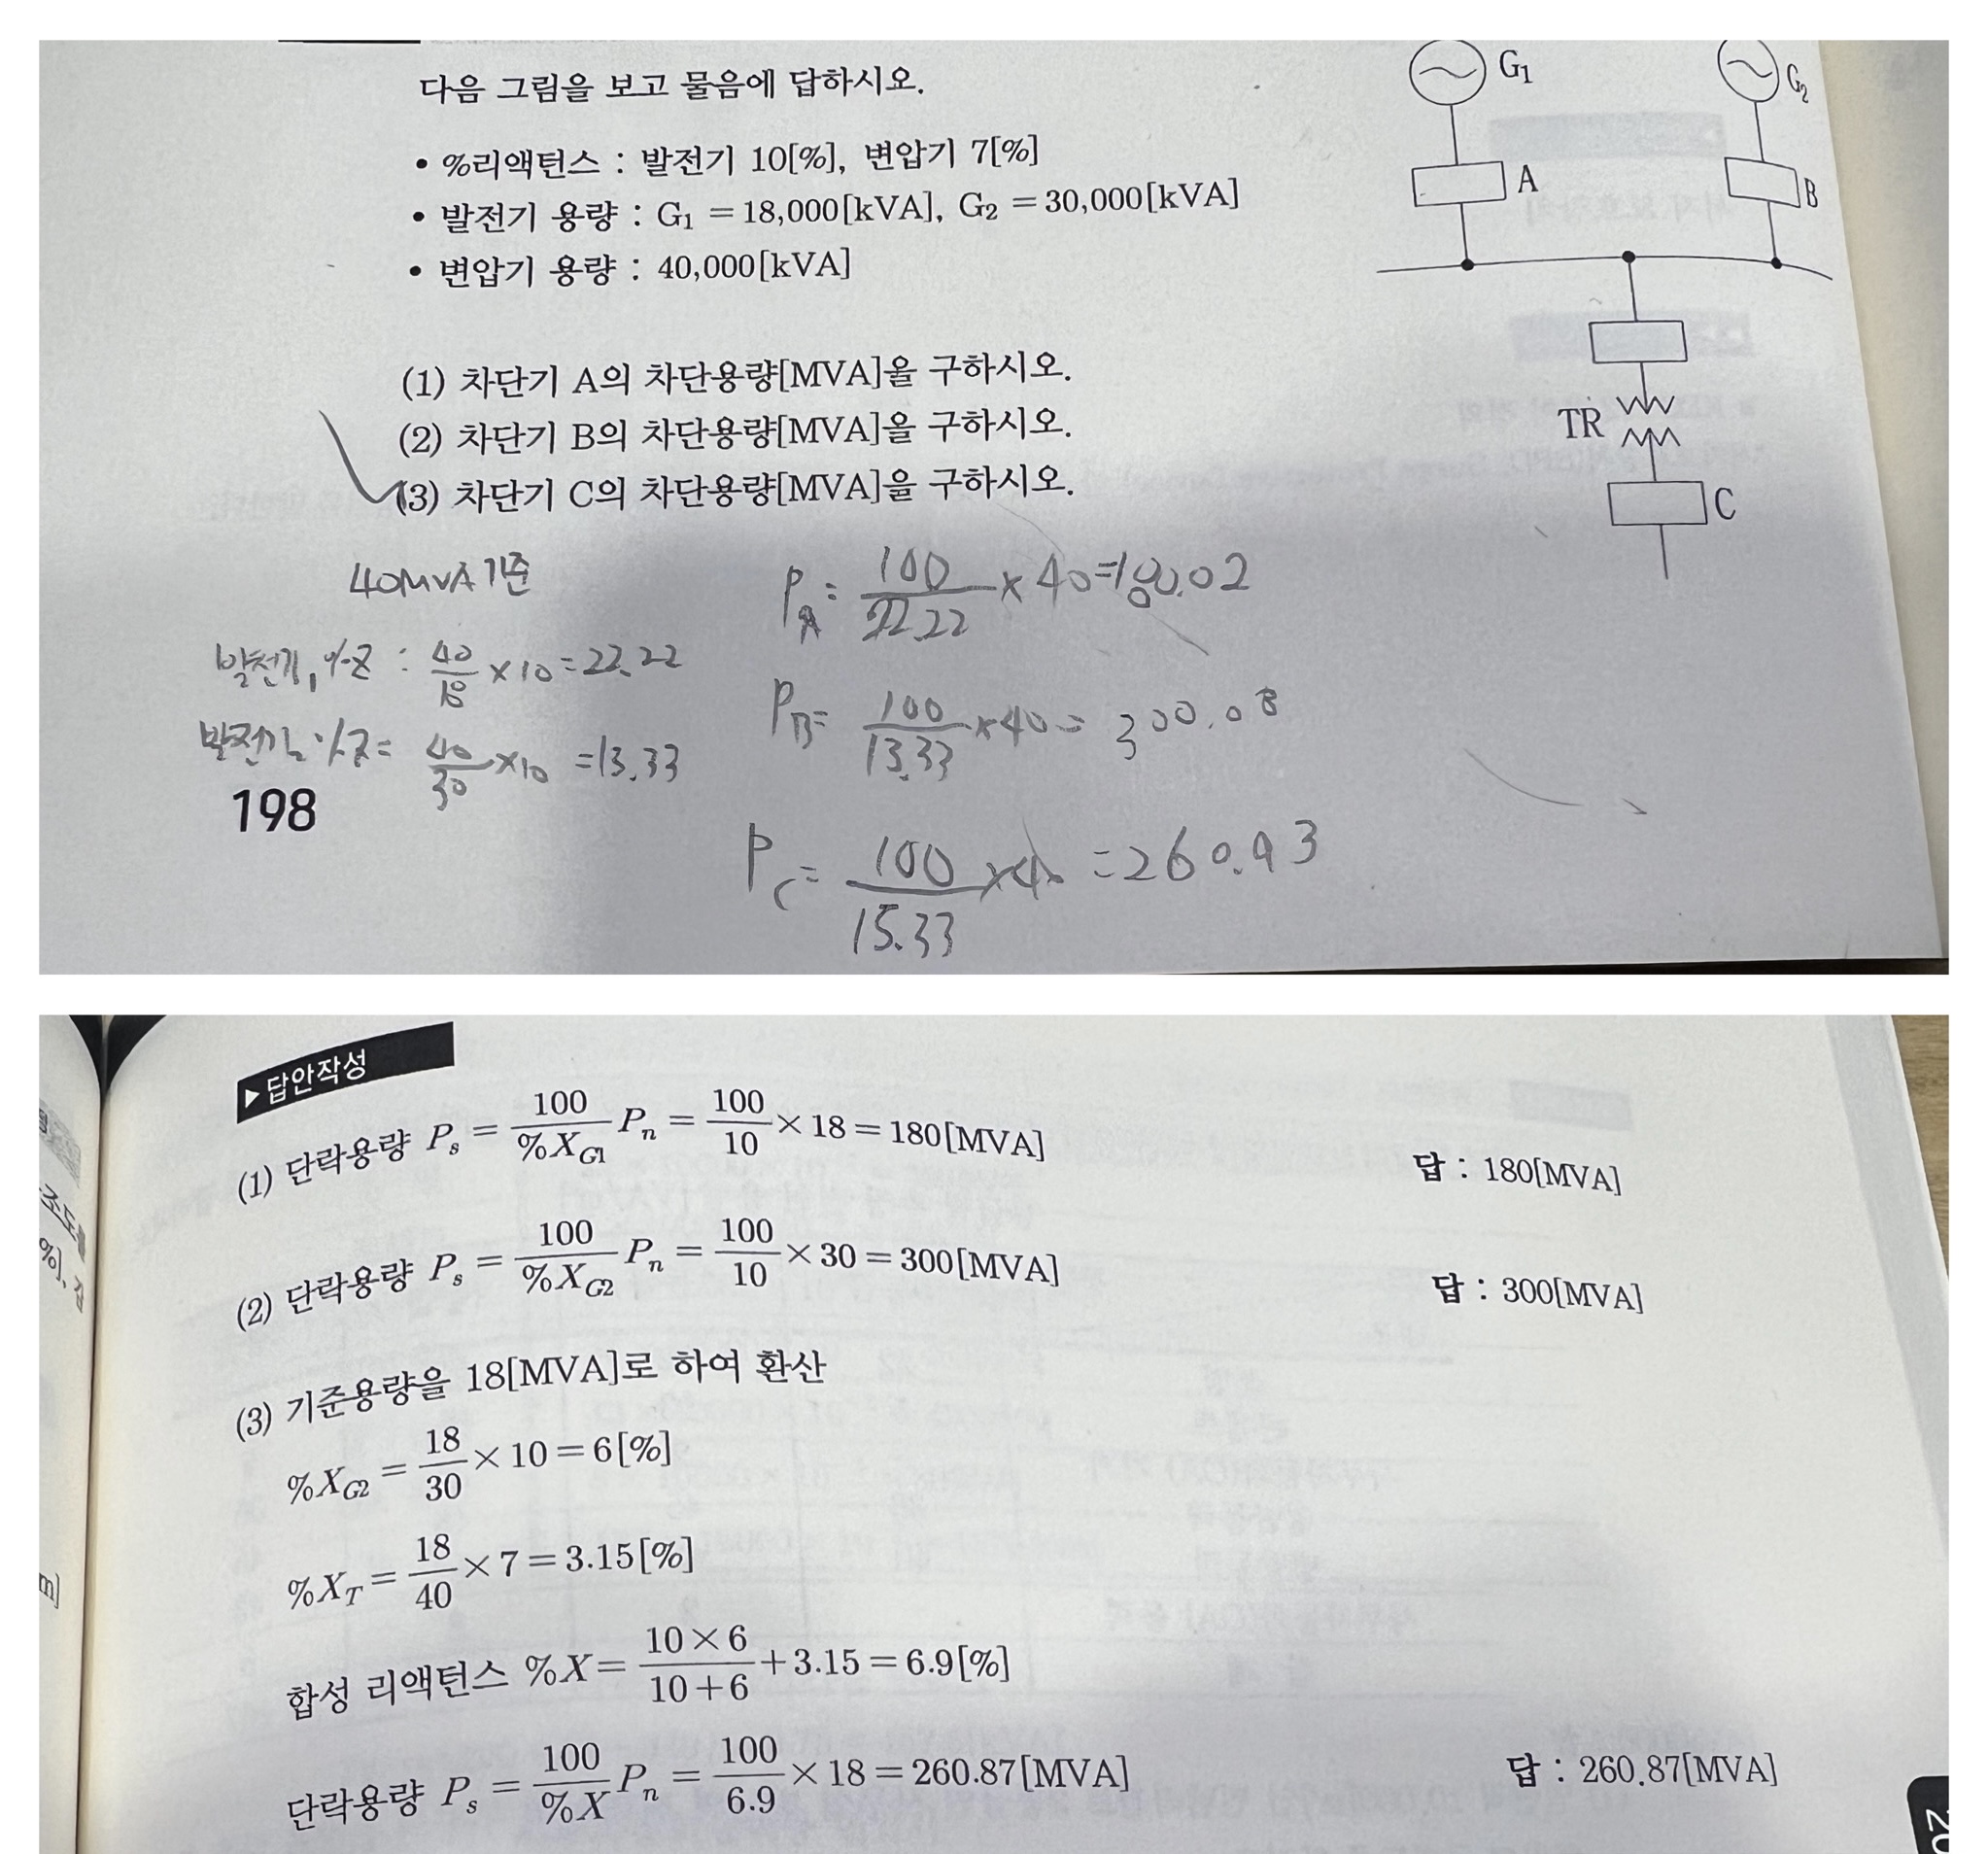 다음 그림을 보고 물음에 답하시오.
• %리액턴스 : 발전기 10[%], 변압기 7[%]
• 발전기 용량 : G₁ = 18,000[kVA], G₂ = 30,000[kVA]
• 변압기 용량 : 40,000[kVA]
(1) 차단기 A의 차단용량[MVA]을 구하시오.
(2) 차단기 B의 차단용량[MVA]을 구하시오.
(3) 차단기 C의 차단용량[MVA]을 구하시오.
G₁
G₂
A
B
TR
C
40MVA 기준
발전기₁ %Z : 40/18 × 10 = 22.22
발전기₂ %Z = 40/30 × 10 = 13.33
198
P_A = 100/22.22 × 40 = 180.02
P_B = 100/13.33 × 40 = 300.08
P_C = 100/15.33 × 40 = 260.93
▶답안작성
(1) 단락용량 P_s = 100/%X_G1 P_n = 100/10 × 18 = 180[MVA]
답 : 180[MVA]
(2) 단락용량 P_s = 100/%X_G2 P_n = 100/10 × 30 = 300[MVA]
답 : 300[MVA]
(3) 기준용량을 18[MVA]로 하여 환산
%X_G2 = 18/30 × 10 = 6[%]
%X_T = 18/40 × 7 = 3.15[%]
합성 리액턴스 %X = 10×6/10+6 + 3.15 = 6.9[%]
단락용량 P_s = 100/%X P_n = 100/6.9 × 18 = 260.87[MVA]
답 : 260.87[MVA]